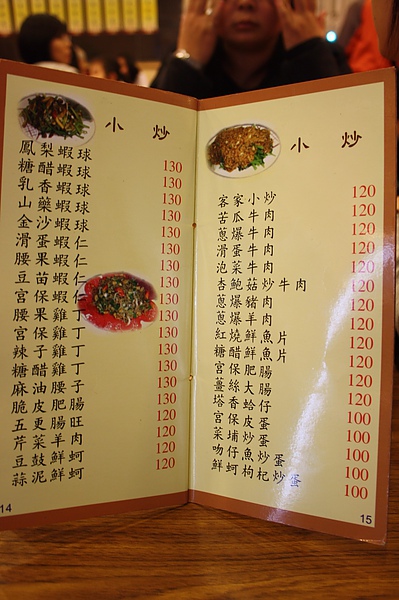 小炒
鳳梨蝦球 130
糖醋蝦球 130
乳香蝦球 130
山藥蝦球 130
金沙蝦球 130
滑蛋蝦仁 130
腰果蝦仁 130
豆苗蝦仁 130
宮保蝦仁 130
腰果雞丁 130
宮保雞丁 130
辣子雞丁 130
糖醋雞丁 130
麻油腰子 130
脆皮肥腸 130
五更腸旺 120
芹菜羊肉 120
豆鼓鮮蚵 120
蒜泥鮮蚵 120
14
小炒
客家小炒 120
苦瓜牛肉 120
蔥爆牛肉 120
滑蛋牛肉 120
泡菜牛肉 120
杏鮑菇炒牛肉 120
蔥爆豬肉 120
蔥爆羊肉 120
紅燒鮮魚片 120
糖醋鮮魚片 120
宮保肥腸 120
薑絲大腸 120
塔香蛤仔 100
宮保皮蛋 100
菜埔炒蛋 100
吻仔魚炒蛋 100
鮮蚵枸杞炒蛋 100
15